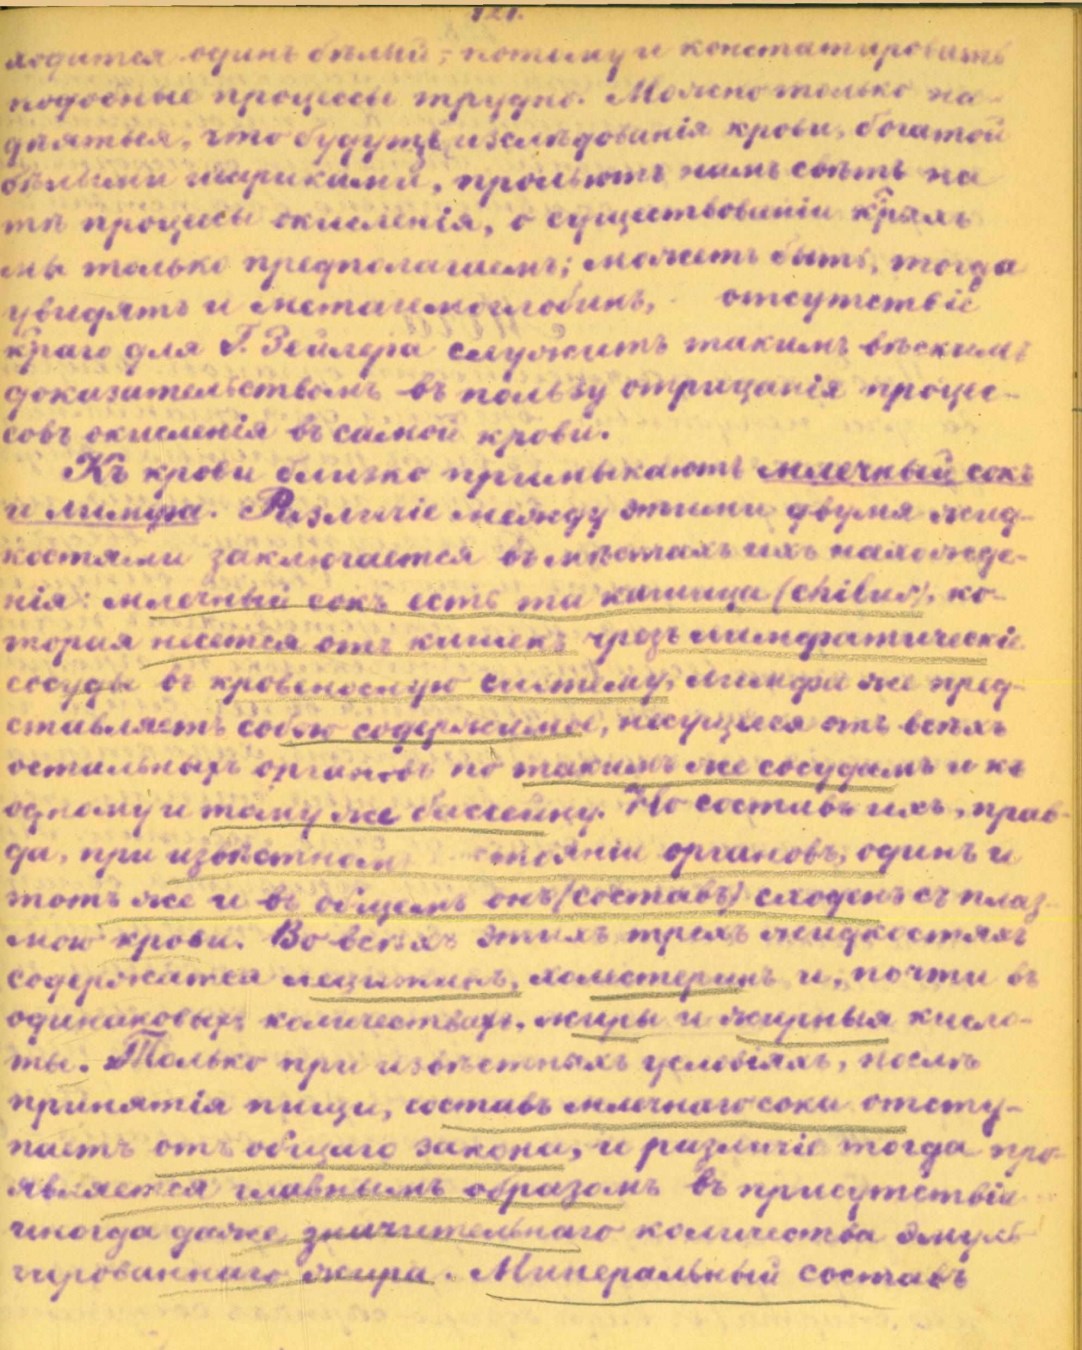 121.
ходится одинъ бѣлый; потому и констатировать
подобные процессы трудно. Можно только на-
дѣяться, что будутъ изслѣдованія крови, богатой
бѣлыми шариками, прольютъ намъ свѣтъ на
тѣ процесы окисленія, о существованіи крыхъ
мы только предполагаемъ; можетъ быть, тогда
увидятъ и метгемоглобинъ, отсутствіе
краго для Г. Зейлера служитъ такимъ вѣскимъ
доказательствомъ въ пользу отрицанія процес-
совъ окисленія въ самой крови.
Къ крови близко примыкаютъ млечный сокъ
и лимфа. Различіе между этими двумя жид-
костями заключается въ мѣстахъ ихъ нахожде-
нія: млечный сокъ есть та кашица (chilus), ко-
торая несется отъ кишекъ чрезъ лимфатическіе
сосуды въ кровеносную систему, лимфа же пред-
ставляетъ собою содержимое, несущееся отъ всѣхъ
остальныхъ органовъ по такимъ же сосудамъ и къ
одному и тому же бассейну. Но составъ ихъ, прав-
да, при извѣстномъ стояніи органовъ, одинъ и
тотъ же и въ общемъ онъ (составъ) сходенъ съ плаз-
мою крови. Во всѣхъ этихъ трехъ жидкостяхъ
содержатся лецитинъ, холестеринъ и, почти въ
одинаковыхъ количествахъ, жиры и жирныя кисло-
ты. Только при извѣстныхъ условіяхъ, послѣ
принятія пищи, составъ млечнаго сока отсту-
паетъ отъ общаго закона, и различіе тогда про-
является главнымъ образомъ въ присутствіи
иногда даже значительнаго количества эмуль-
гированнаго жира. Минеральный составъ